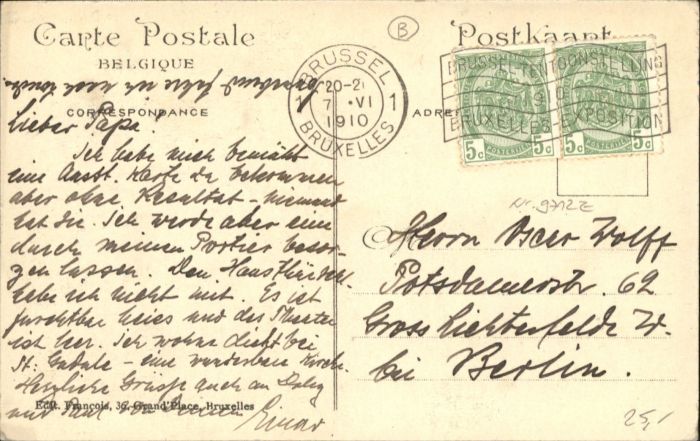 Carte Postale
Postkaart
BELGIQUE
CORRESPONDANCE
B
BRUSSEL 1
20-2
7 VI
1910
BRUXELLES
BRUSSEL TENTOONSTELLING
BRUXELLES-EXPOSITION
5c 5c 5c 5c
Nr. 9712E
Lieber Papa!
Ich habe mich bemüht
eine Ausst. Karte zu bekommen
aber ohne Resultat - niemand
hat die. Ich werde aber eine
durch meinen Portier besor-
gen lassen. Den
habe ich nicht mit. Es ist
furchtbar heiss und das Theater
ist leer. Ich wohne dicht bei
St. Gudule - eine wunderbare Kirche.
Herzliche Grüsse auch an
und Paul von Deinem
Herrn Oscar Wolff
Potsdamerstr. 62
Gross Lichterfelde W.
bei Berlin.
Edit. François, 36, Grand'Place, Bruxelles
25,-